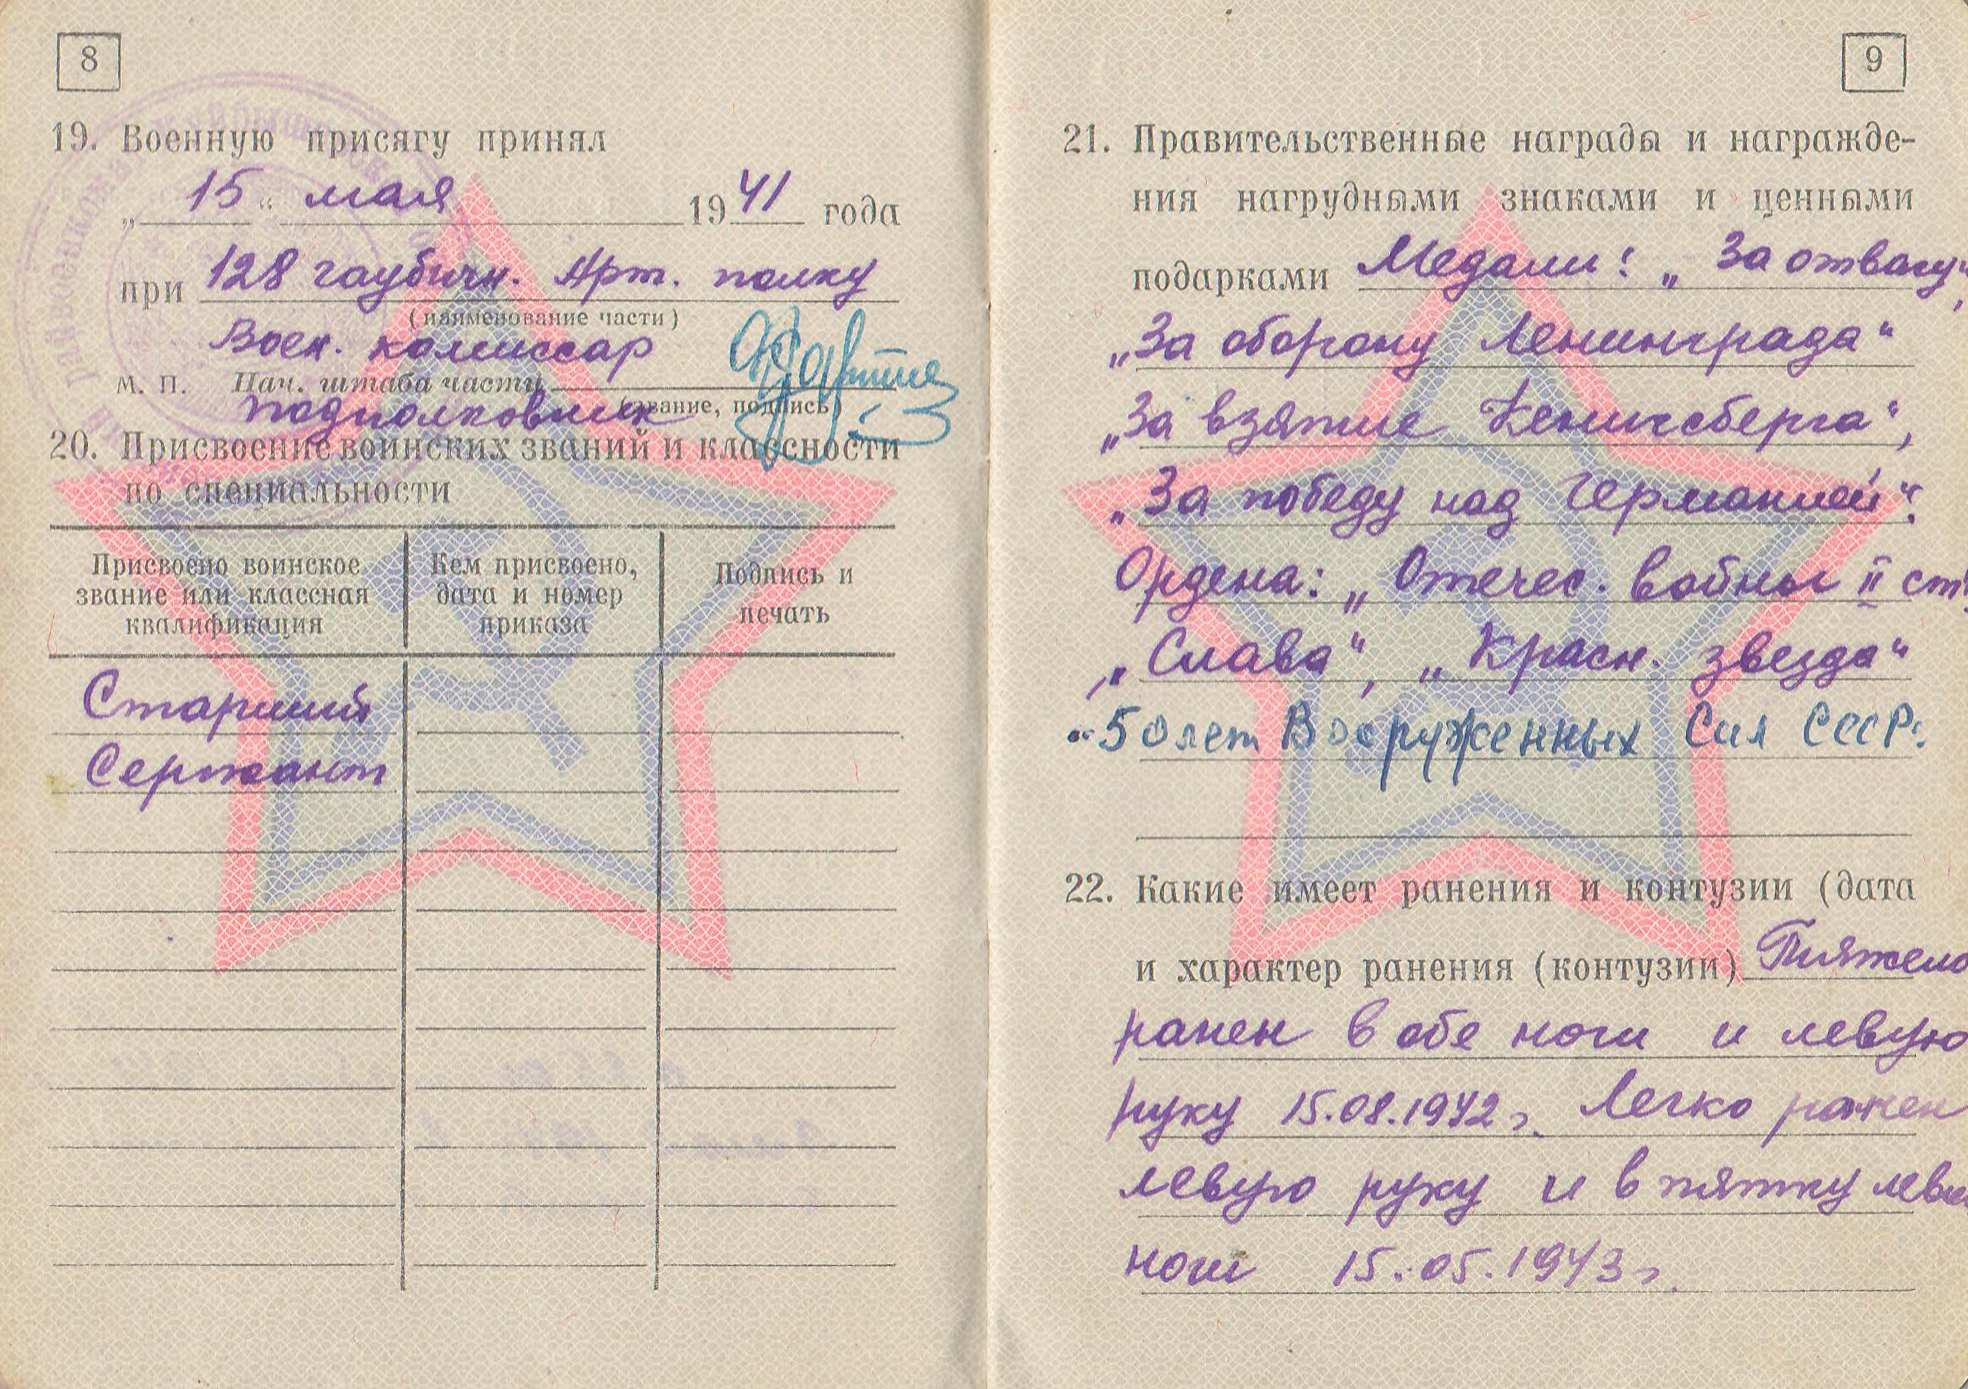 8
19. Военную присягу принял
„ 15 “ мая 1941 года
при 128 гаубичн. Арт. полку
(наименование части)
Воен. комиссар
М. П. Нач. штаба части
(звание, подпись)
подполковник
20. Присвоение воинских званий и классности
по специальности
Присвоено воинское звание или классная квалификация
Кем присвоено, дата и номер приказа
Подпись и печать
Старший
Сержант
9
21. Правительственные награды и награжде-
ния нагрудными знаками и ценными
подарками Медали: „За отвагу“,
„За оборону Ленинграда“
„За взятие Кенигсберга“,
„За победу над Германией“.
Ордена: „Отечес. войны II ст“,
„Слава“, „Красн. звезда“
„50 лет Вооруженных Сил СССР.
22. Какие имеет ранения и контузии (дата
и характер ранения (контузии) Тяжело
ранен в обе ноги и левую
руку 15.08.1942г. Легко ранен
левую руку и в пятку
ноги 15.05.1943г.